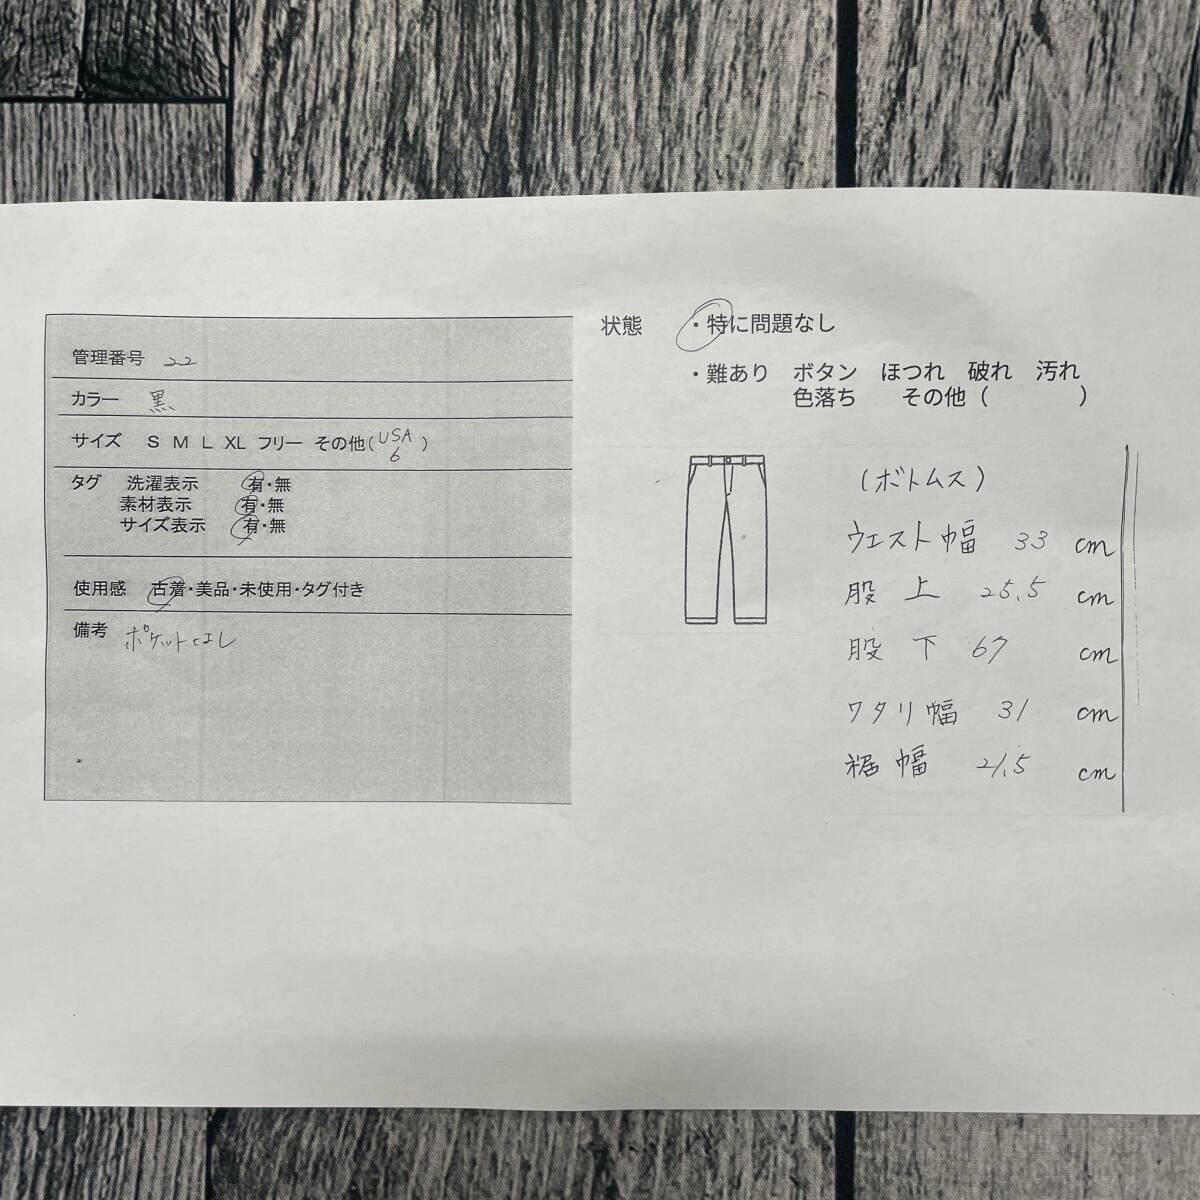 管理番号 22
カラー 黒
サイズ S M L XL フリー その他(USA 6)
タグ 洗濯表示 有・無
素材表示 有・無
サイズ表示 有・無
使用感 古着・美品・未使用・タグ付き
備考 ポケットなし
状態 ・特に問題なし
・難あり ボタン ほつれ 破れ 汚れ
色落ち その他( )
(ボトムス)
ウエスト幅 33 cm
股上 25.5 cm
股下 67 cm
ワタリ幅 31 cm
裾幅 21.5 cm